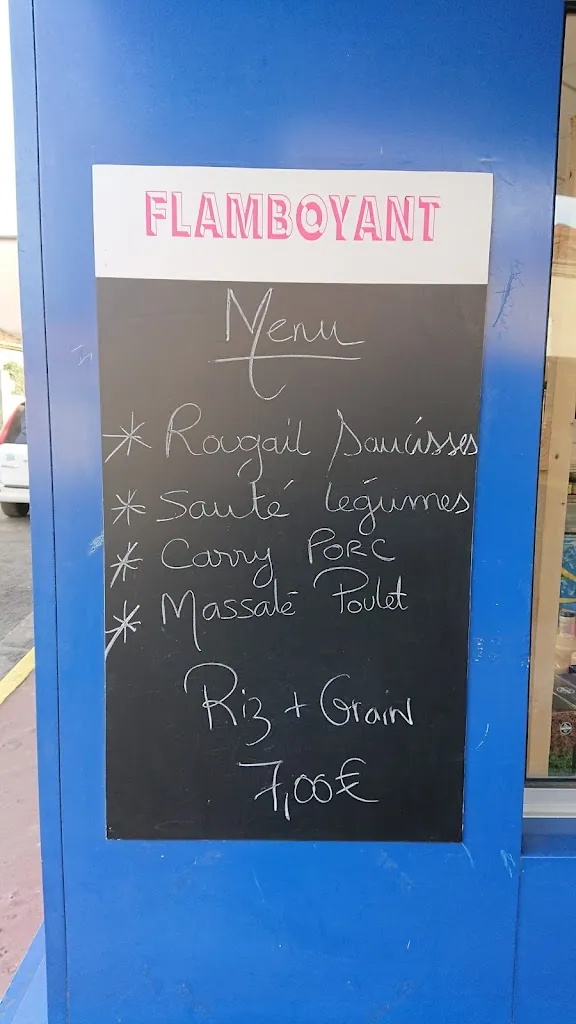 FLAMBOYANT
Menu
* Rougail Saucisses
* Sauté légumes
* Carry PORC
* Massalé Poulet
Riz + Grain
7,00€